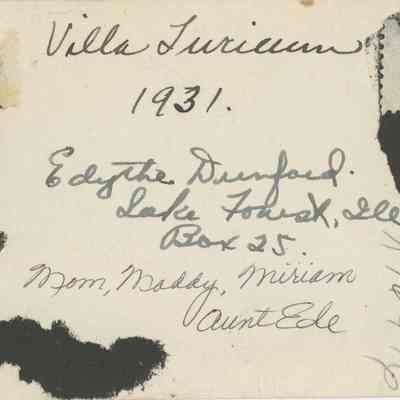 Villa Turicum
1931.
Edythe Dunford.
Lake Forest, Ill
Box 25.
Mom, Maddy, Miriam
Aunt Ede